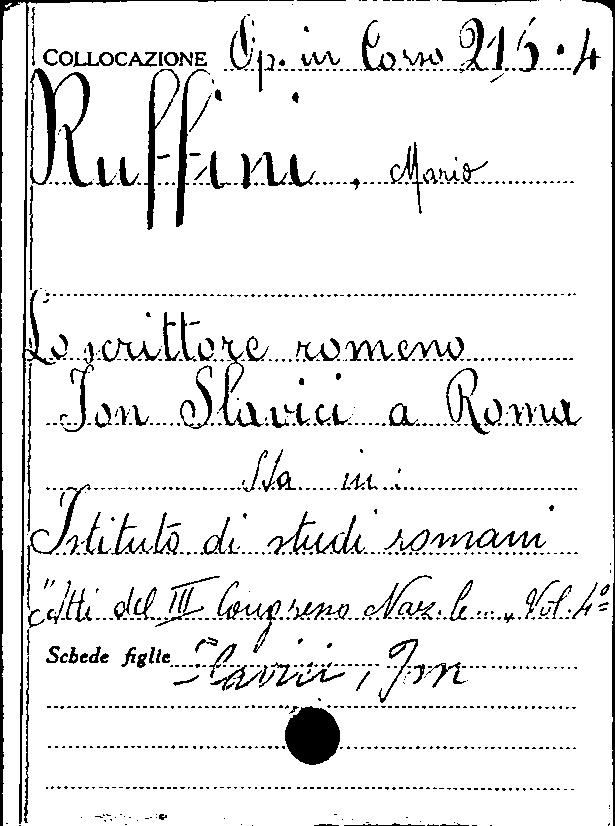 COLLOCAZIONE Op. in Corso 215.4
Ruffini, Mario
Lo scrittore romeno
Ion Slavici a Roma
Sta in:
Istituto di studi romani
"Atti del III Congresso Naz.le...„ Vol. 4º
Schede figlie Slavici, Ion